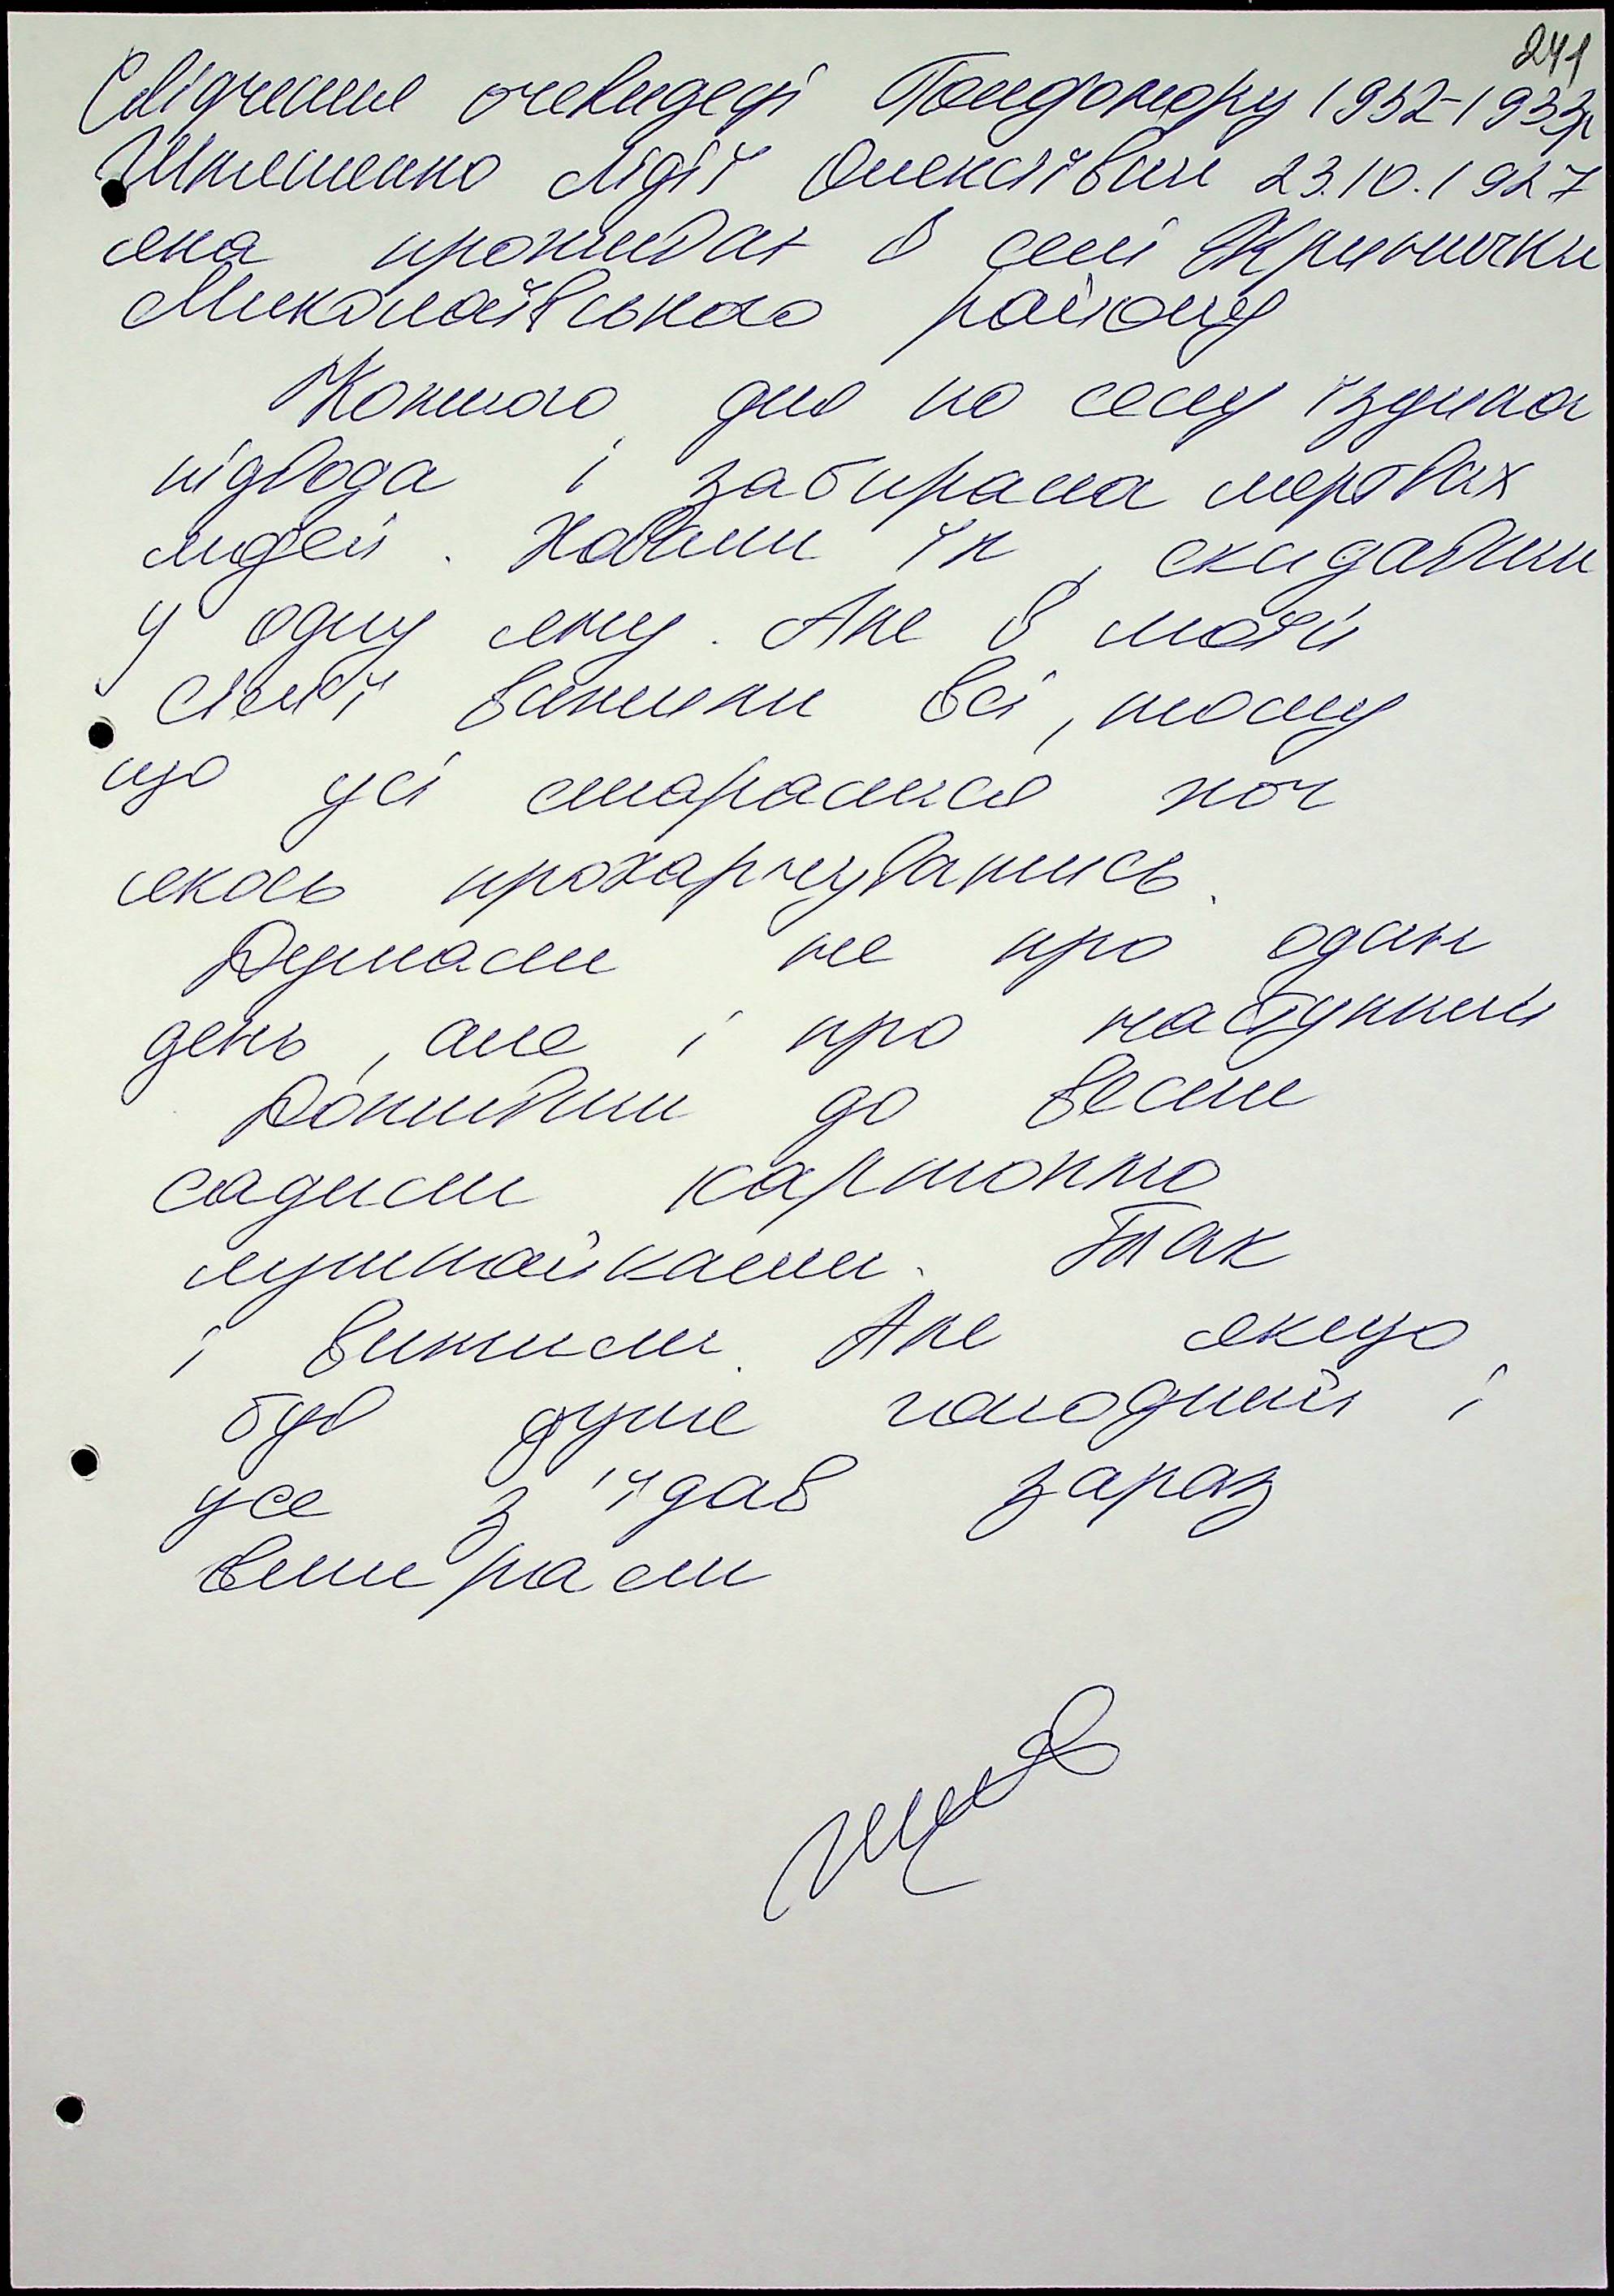 241
Свідчення очевидеці Голдомору 1932-1933р
Лідії Олексіївни 23.10.1927
яка проживає в селі Кринички
Миколаївського району
Кожного дня по селу їздила
підвода і забирала мертвах
людей. Ховали їх, скидавши
у одну яму. Але в моїй
сім'ї вижили всі, тому
що усі старалися хоч
якось прохарчуватись.
Думали не про один
день, але і про наступний
Доживши до весни
садили картоплю
лушпайками. Так
і вижили. Але якщо
був дуже голодний і
усе з'їдав зараз
вмирали